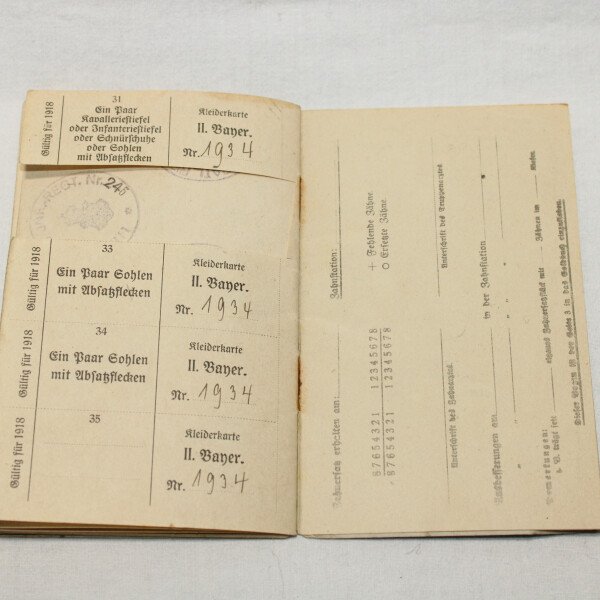 Gültig für 1918
31
Ein Paar
Kavalleriestiefel
oder Infanteriestiefel
oder Schnürschuhe
oder Sohlen
mit Absatzflecken
Kleiderkarte
II. Bayer.
Nr. 1934
Nr. 245
Gültig für 1918
33
Ein Paar Sohlen
mit Absatzflecken
Kleiderkarte
II. Bayer.
Nr. 1934
Gültig für 1918
34
Ein Paar Sohlen
mit Absatzflecken
Kleiderkarte
II. Bayer.
Nr. 1934
Gültig für 1918
35
Kleiderkarte
II. Bayer.
Nr. 1934
Zahnstation:
Zahnersatz erhalten am:
87654321 12345678
87654321 12345678
+ Fehlende Zähne
O Ersetzte Zähne
Unterschrift des Truppenarztes
Unterschrift des Zahnarztes
Ausbesserungen am: in der Zahnstation
" " "
" " "
Bemerkungen:
z. B. trägt seit eigenes Zahnersatzstück mit Zähnen im Kiefer.
Dieser Bogen ist auf Seite 3 in das Soldbuch einzukleben.